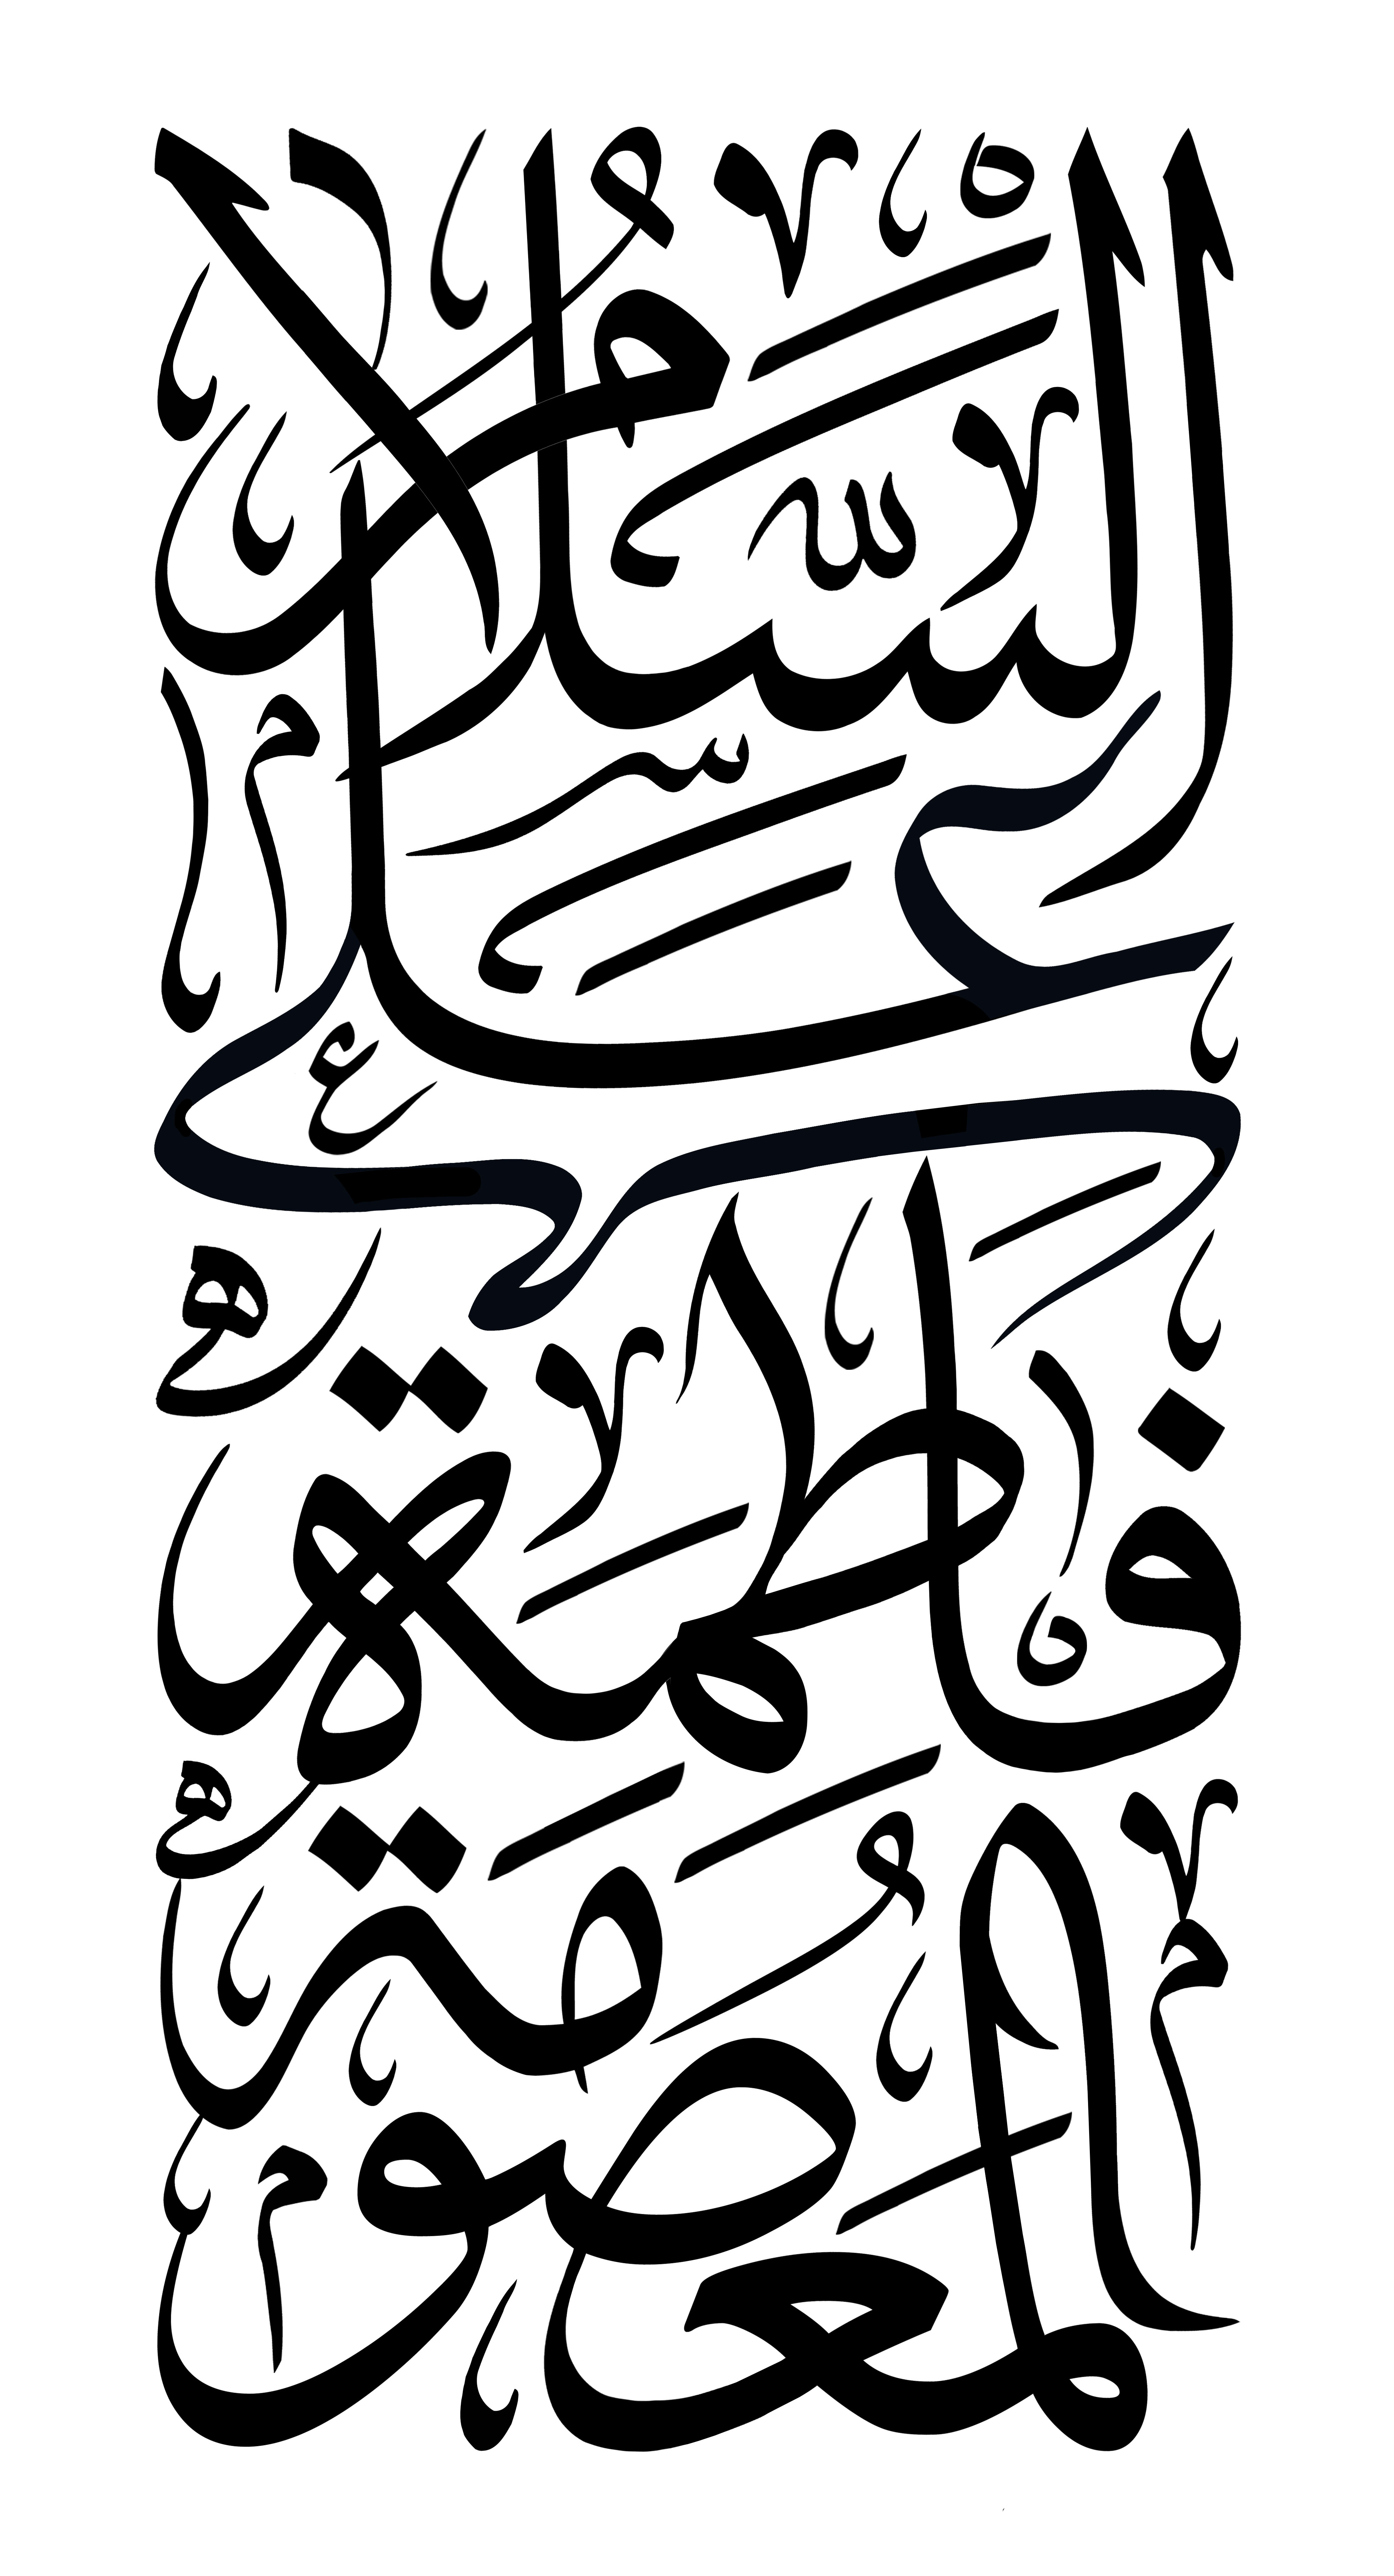 السَّلَامُ عَلَى
فَاطِمَةَ
المَعْصُومَةِ